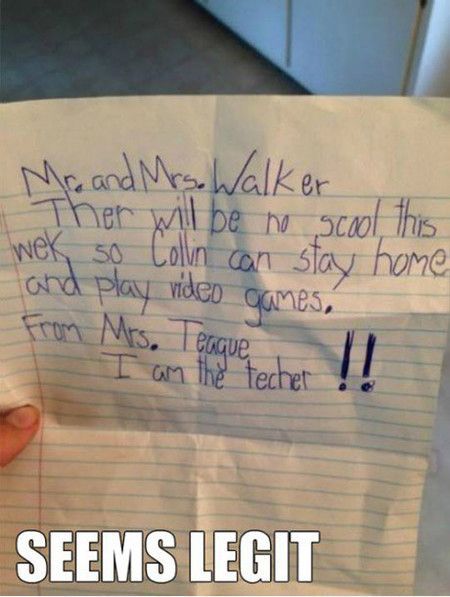 Mr. and Mrs. Walker
Ther will be no scool this
wek so Collin can stay home
and play video games.
From Mrs. Teague
I am the techer !!
SEEMS LEGIT